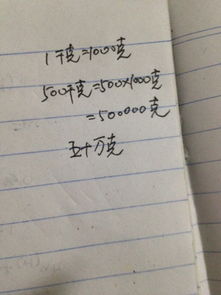 1千克=1000克
500千克=500×1000克
=500000克
五十万克